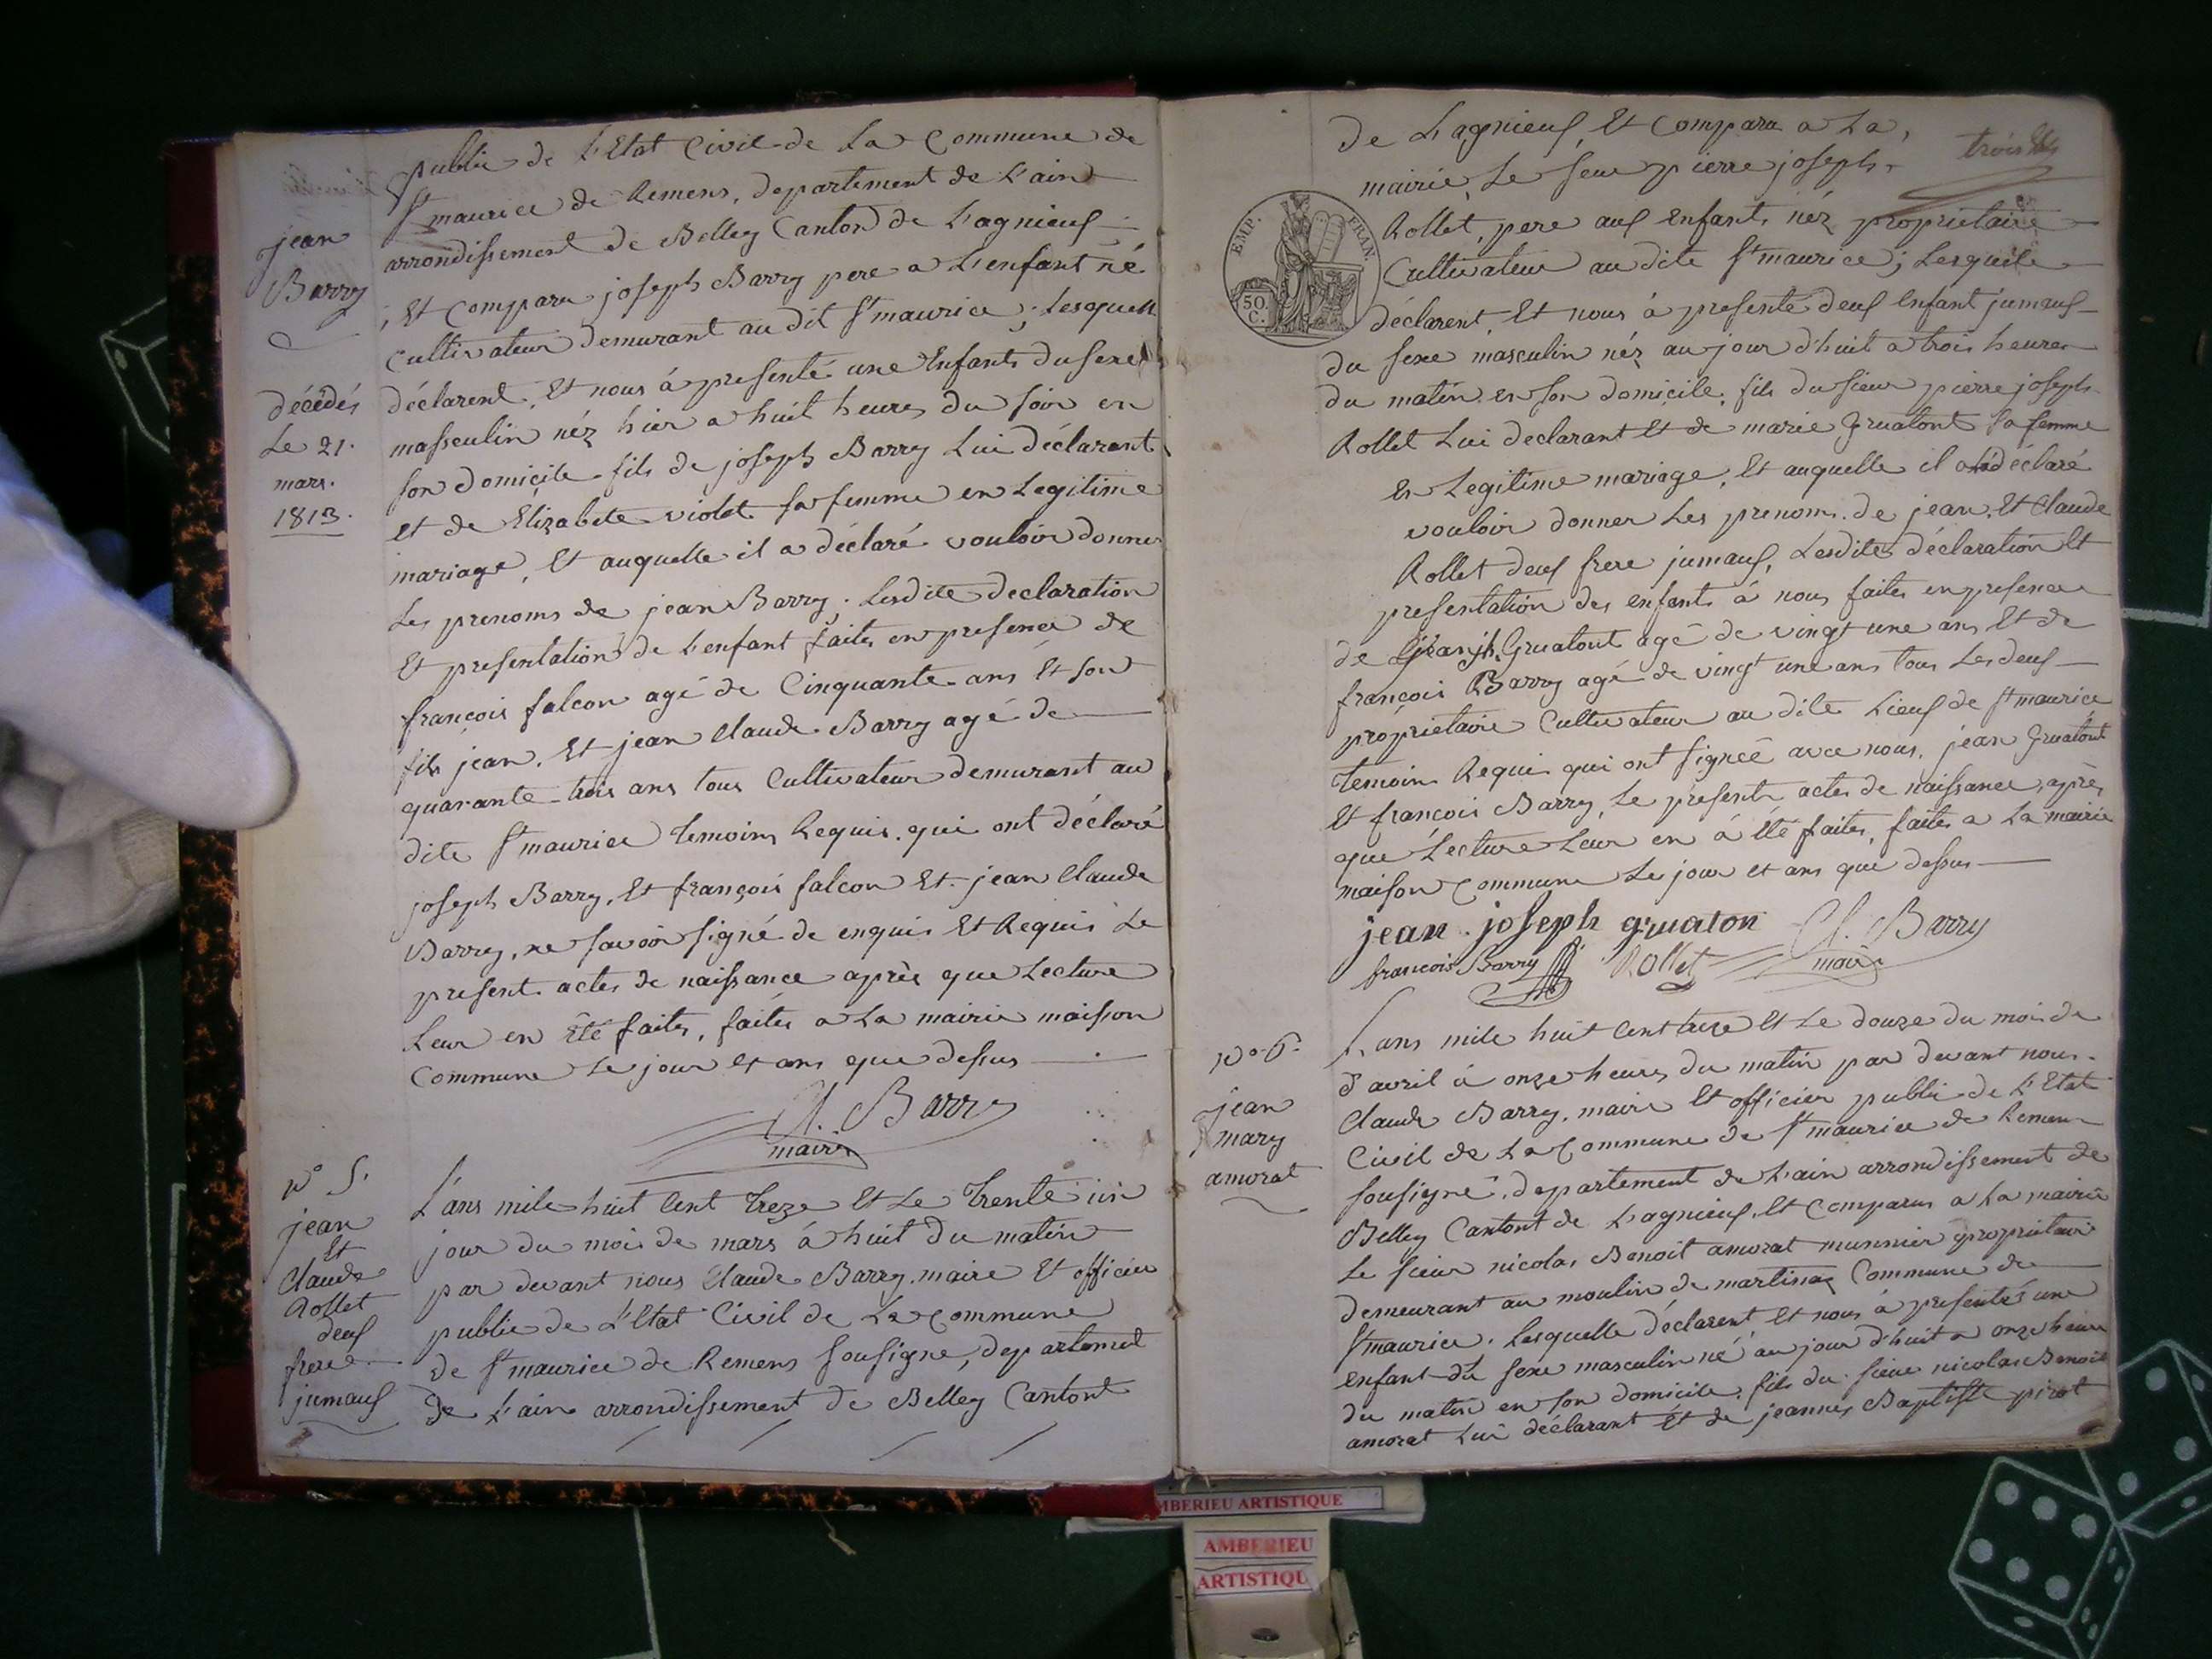 public de L'Etat Civil de La Commune de
St maurice de Remens, departement de L'ain
arrondissement de Belley Canton de Lagnieuf
jean
Barry
, Et Comparu joseph Barry pere a L'enfant né
Cultivateur demurant au dit St maurice ; Lesquell
déclarent, Et nous à presenté une Enfants du sexe
décédés
Le 21.
mars.
1813.
masseulin néz hier a huit heures du soir en
son domicile fils de joseph Barry Lui déclarant
et de Elizabete violet sa femme en Legitime
mariage, Et auquelle il a déclaré vouloir donner
Les prenoms de jean Barry. Lesdite declaration
Et presentation de L'enfant faites en presence de
françois falcon agé de Cinquante ans et son
fils jean. Et jean Claude Barry agé de
quarante-trois ans tous Cultivateur demurant au
dite St maurice Temoins Requis. qui ont déclaré
joseph Barry, Et françois falcon Et jean Claude
Barry, ne savoir signé de enquis Et Requis Le
present actes de naissance après que Lecture
Leur en été faites, faites a La mairie maison
Commune Le jour et ans que dessus
Cl. Barry
maire
No 5.
jean
Et
Claude
Rollet
deuf
frere
jumauf
L'ans mile huit Cent Treze Et Le Trente un
jour du mois de mars à huit du matin
par devant nous Claude Barry. maire Et officier
public de L'Etat Civil de La Commune
de St maurice de Remens Sousigne, departemet
de L'ain arrondissement de Belley Cantont
de Lagnieuf, Et Compara a La,
mairie, Le sieur pierre joseph.
Rollet, pere auf Enfants néz proprietaire
Cultivateur au dite St maurice ; Lesquelle
EMP. FRAN.
50.
C.
déclarent, Et nous à presenté deuf Enfant jumauf
du sexe masculin néz au jour d'huit a trois heures
du matin en son domicile. fils du sieur pierre joseph
Rollet Lui declarant Et de marie Gruatont sa femme
en Legitime mariage, Et auquelle il a déclaré
vouloir donner Les prenoms de jean. Et Claude
Rollet deuf frere jumauf, Lesdites déclaration Et
presentation des enfants à nous faites en presence
de Gruatont agé de vingt une ans Et de
françois Barry agé de vingt une ans tous Les deuf
proprietaire Cultivateur au dite Lieuf de St maurice
Temoins Requis qui ont signeé avec nous. jean Gruatont
Et françois Barry, Le presents actes de naissance, après
que Lecture Leur en à été faites, faites a La mairie
maison Commune Le jour et ans que dessus
jean. joseph gruaton Cl. Barry
francois Barry Rollet maire
No 6.
jean
mary
amorat
L'ans mile huit Cent treze Et Le douze du mois de
d'avril à onze heures du matin par devant nous.
Claude Barry. maire Et officier public de L'Etat
Civil de La Commune de St maurice de Remens
sousigné, departement de L'ain arrondissement de
Belley Cantont de Lagnieuf, Et Comparus a La mairie
Le sieur nicolas Benoit amorat munnier proprietaire
demeurant au moulin de martinaz Commune de
St maurice. Lesquelle déclarent Et nous à presenté une
enfant du sexe masculin né au jour d'huit a onze heures
du matin en son domicile. fils du sieur nicolas Benoit
amorat Lui déclarant Et de jeannes Baptiste pirot
AMBERIEU ARTISTIQUE
AMBERIEU
ARTISTIQU